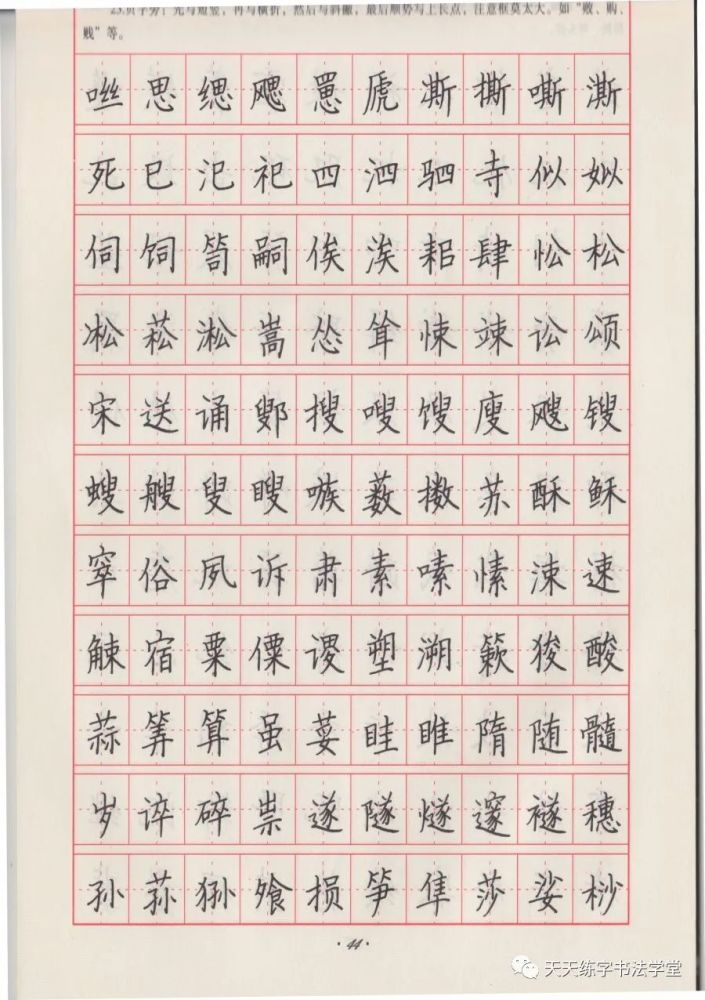 23.贝字旁：先写短竖，再写横折，然后写斜撇，最后顺势写上长点，注意框莫太大。如“败、购、
贱”等。
咝思缌飔罳虒澌撕嘶澌
死巳汜祀四泗驷寺似姒
伺饲笥嗣俟涘耜肆忪松
凇菘淞嵩怂耸悚竦讼颂
宋送诵鄋搜嗖馊廋飕锼
螋艘叟瞍嗾薮擞苏酥稣
窣俗夙诉肃素嗉愫涑速
觫宿粟僳谡塑溯簌狻酸
蒜筭算虽荽眭睢隋随髓
岁谇碎祟遂隧燧邃襚穗
孙荪狲飧损笋隼莎娑桫
·44·
天天练字书法学堂